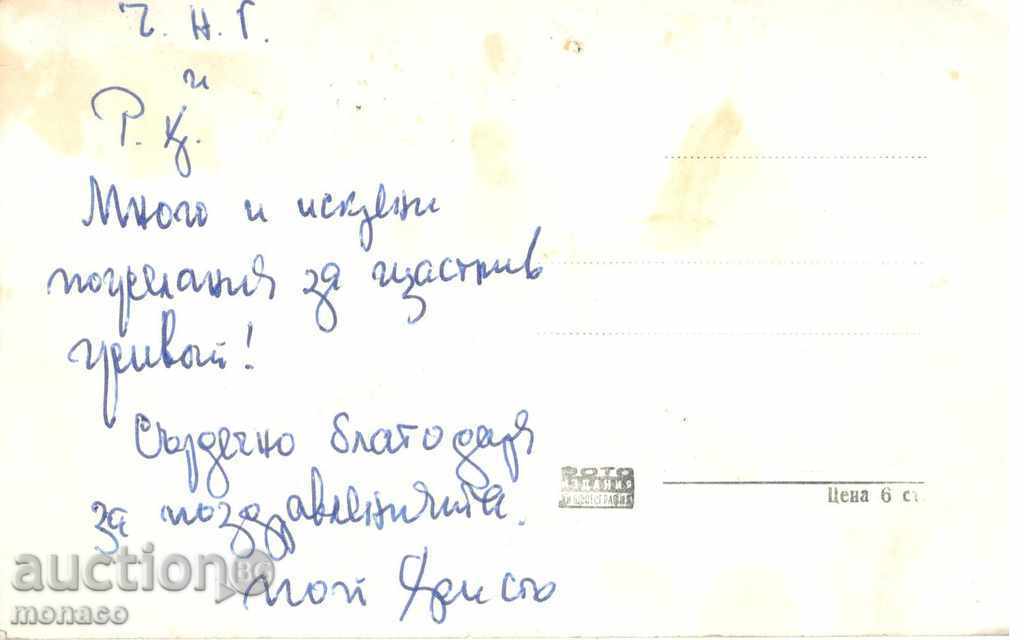 Ч. Н. Г.
и
Р. К.
Много и искрени
пожелания за щастлив
живот!
Сърдечно благодаря
за поздравленията.
Христо
ФОТО
ИЗДАНИЯ
Цена 6 ст.
auction BG
monaco